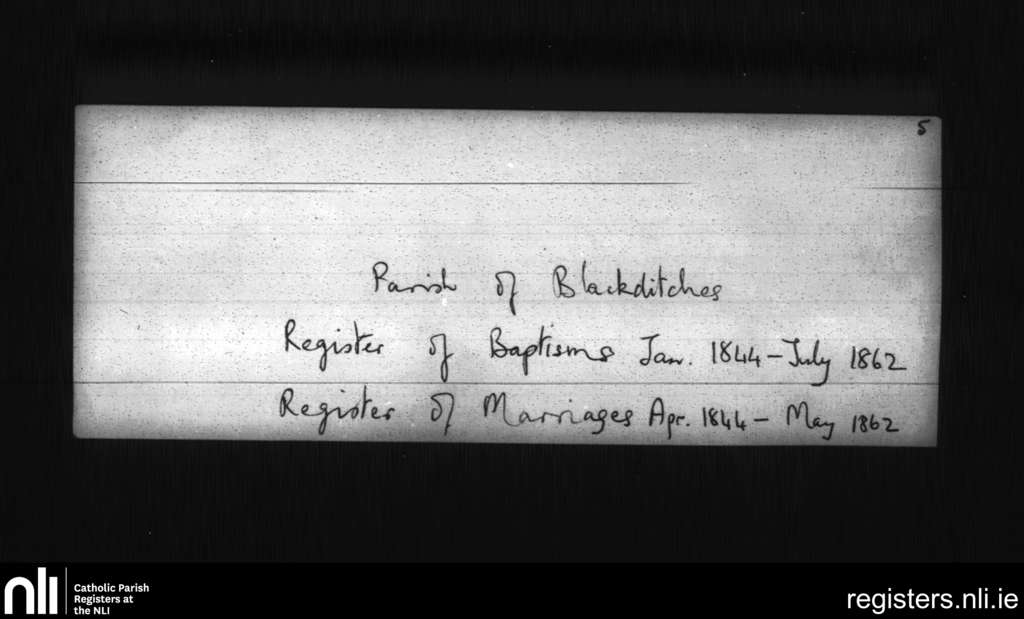 5
Parish of Blackditches
Register of Baptisms Jan. 1844 – July 1862
Register of Marriages Apr. 1844 – May 1862
nli
Catholic Parish
Registers at
the NLI
registers.nli.ie